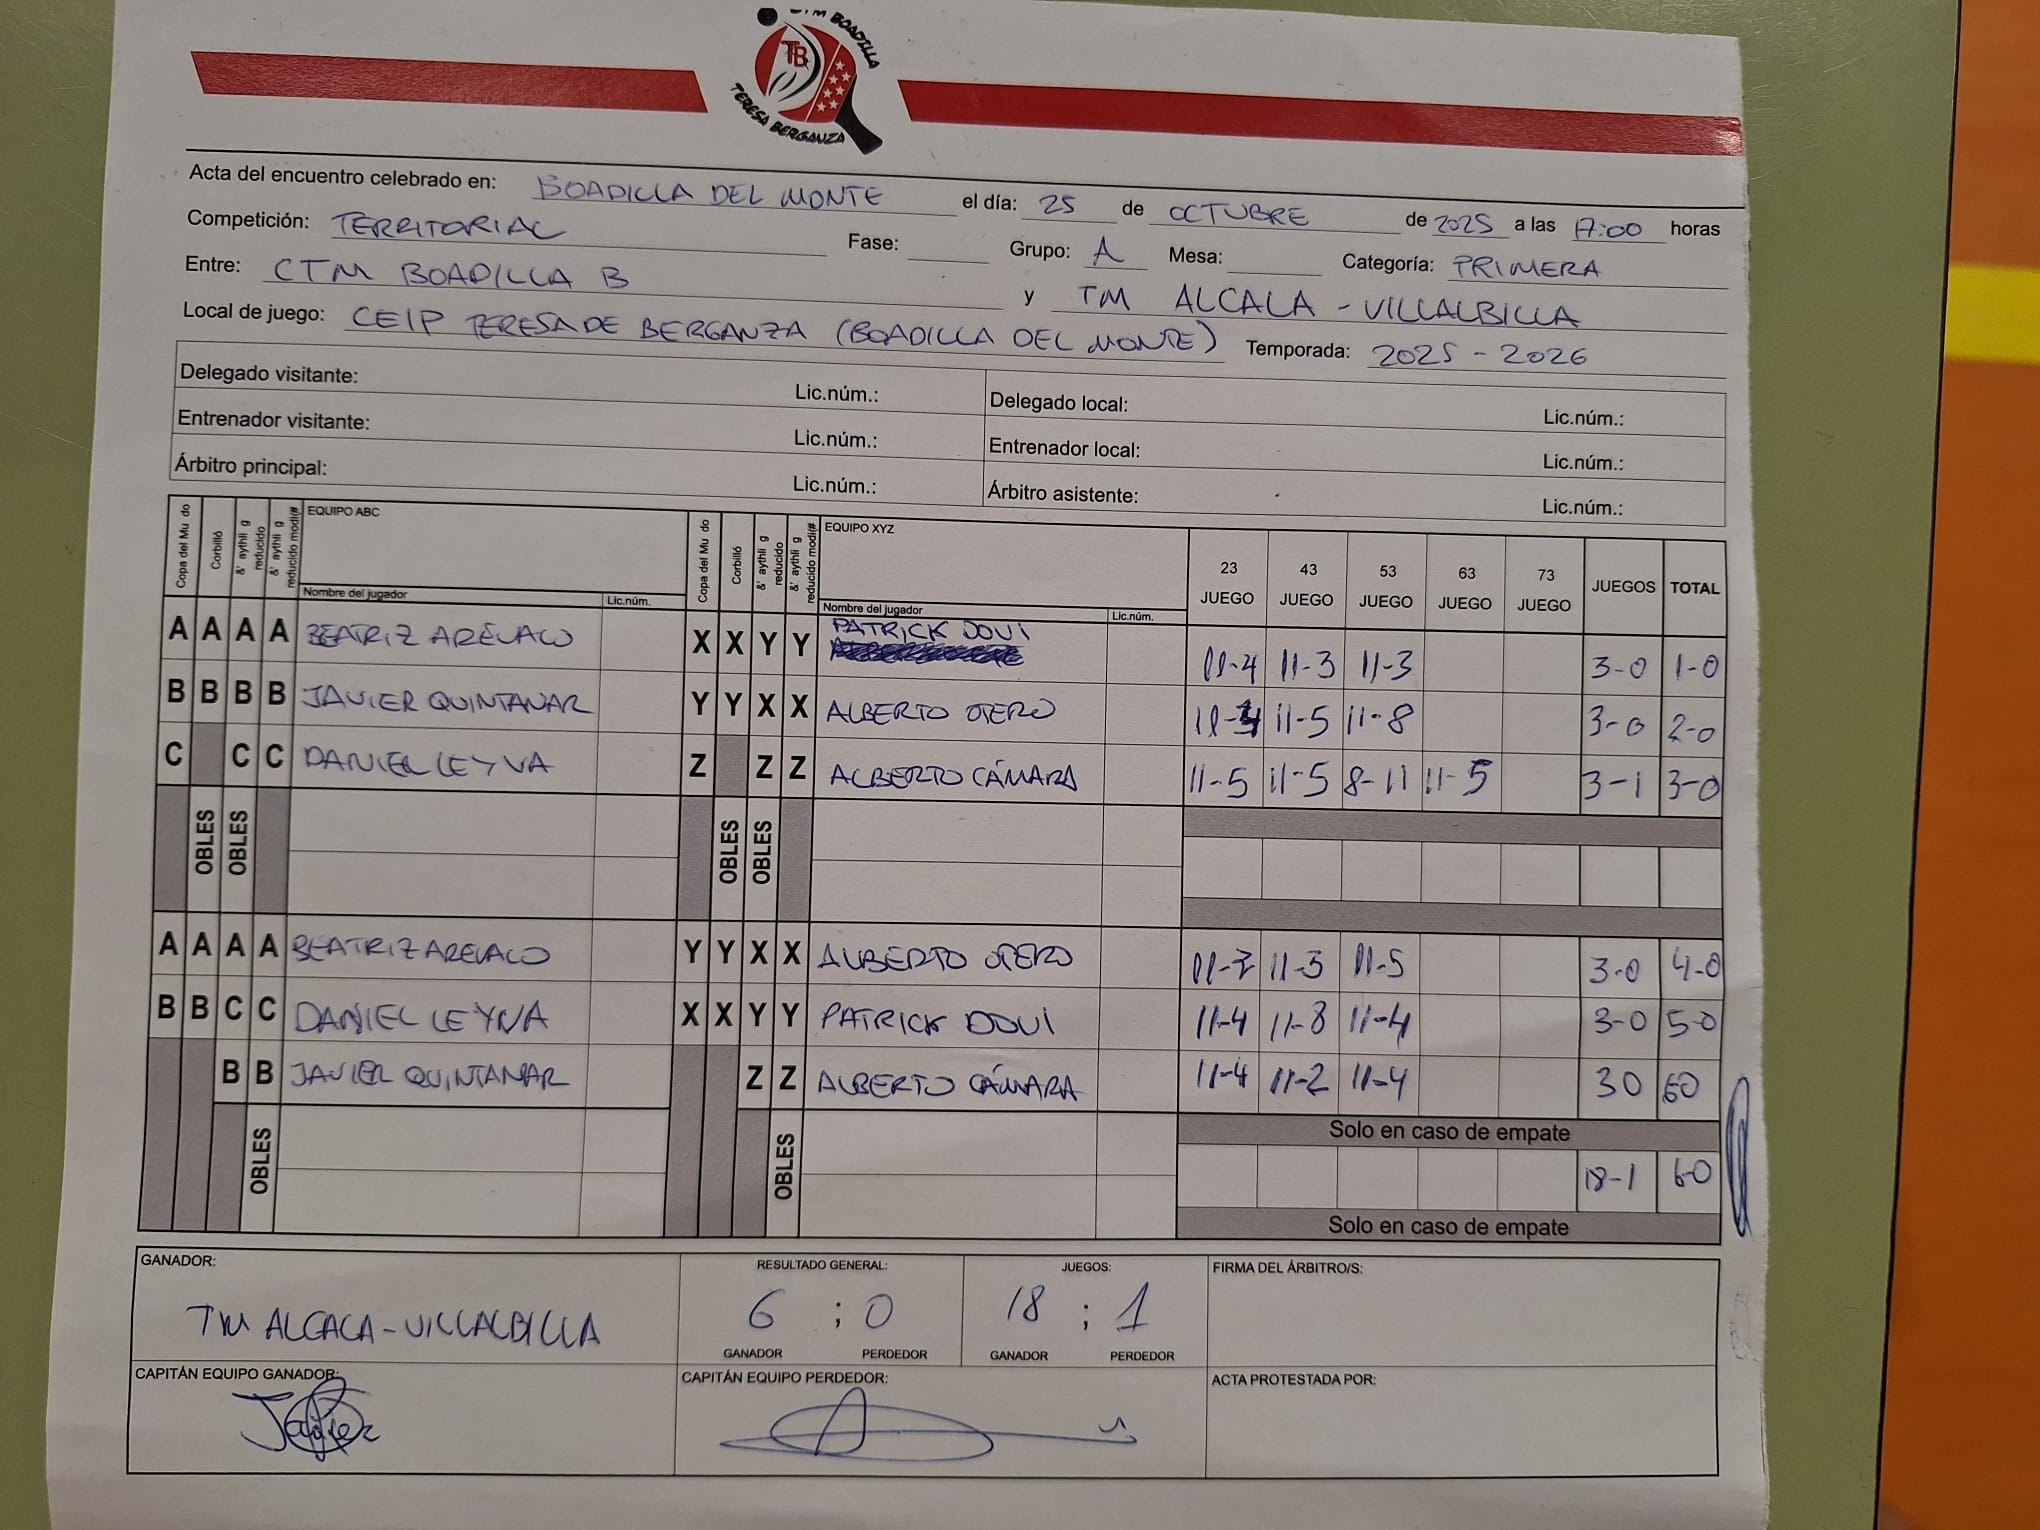 CTM BOADILLA
TB
TERESA BERGANZA
Acta del encuentro celebrado en: BOADILLA DEL MONTE el día: 25 de OCTUBRE de 2025 a las 17:00 horas
Competición: TERRITORIAL Fase: Grupo: A Mesa: Categoría: PRIMERA
Entre: CTM BOADILLA B y TM ALCALA - VILLALBILLA
Local de juego: CEIP TERESA DE BERGANZA (BOADILLA DEL MONTE) Temporada: 2025 - 2026
Delegado visitante: Lic.núm.: Delegado local: Lic.núm.:
Entrenador visitante: Lic.núm.: Entrenador local: Lic.núm.:
Árbitro principal: Lic.núm.: Árbitro asistente: Lic.núm.:
Copa del Mu do Corbilló &' aythli g reducido &' aythli g reducido modi# EQUIPO ABC Copa del Mu do Corbilló &' aythli g reducido &' aythli g reducido modi# EQUIPO XYZ 23 JUEGO 43 JUEGO 53 JUEGO 63 JUEGO 73 JUEGO JUEGOS TOTAL
Nombre del jugador Lic.núm. Nombre del jugador Lic.núm.
A A A A BEATRIZ ARÉVALO X X Y Y PATRICK DOVI 11-4 11-3 11-3 3-0 1-0
B B B B JAVIER QUINTANAR Y Y X X ALBERTO OTERO 11-5 11-8 3-0 2-0
C C C DANIEL LEYVA Z Z Z ALBERTO CÁMARA 11-5 11-5 8-11 11-5 3-1 3-0
OBLES OBLES OBLES OBLES
A A A A BEATRIZ AREVALO Y Y X X ALBERTO OTERO 11-7 11-3 11-5 3-0 4-0
B B C C DANIEL LEYVA X X Y Y PATRICK DOVI 11-4 11-8 11-4 3-0 5-0
B B JAVIER QUINTANAR Z Z ALBERTO CÁMARA 11-4 11-2 11-4 30 60
Solo en caso de empate
OBLES OBLES 18-1 6-0
Solo en caso de empate
GANADOR: RESULTADO GENERAL: JUEGOS: FIRMA DEL ÁRBITRO/S:
TM ALCALA-VILLALBILLA 6 ; 0 18 ; 1
GANADOR PERDEDOR GANADOR PERDEDOR
CAPITÁN EQUIPO GANADOR: CAPITÁN EQUIPO PERDEDOR: ACTA PROTESTADA POR: